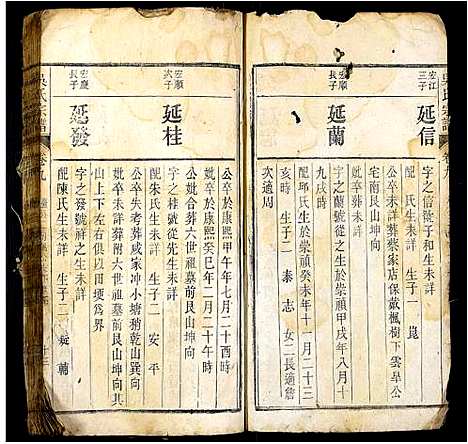 吳氏宗譜
卷九
宏江
三子
延信
字之信從子和生未詳
配 氏生未詳 生子一 崑
公卒未詳葬蔡家店保戴楓樹下雲旱公
宅南艮山坤向
妣卒葬未詳
延蘭
字之蘭號從之生於崇禎甲戌年八月十
九戌時
配邱氏生於崇禎癸未年十一月二十三
亥時 生子二 泰 志 女二長適詹
次適周
宏順
次子
延桂
公卒於康熙甲午年七月二十酉時
妣卒於康熙癸巳年二月二十午時
公妣合葬六世祖墓前艮山坤向
字之桂號從先生未詳
配朱氏生未詳 生子二 安 平
公卒失考葬戚家冲小塘稍乾山巽向
妣卒未詳葬附六世祖墓前艮山坤向其
山上下左右俱以田埂為界
宏慶
長子
延發
字之發號祥之生未詳
配陳氏生未詳 生子二 錠 輔
吳氏宗譜
卷九